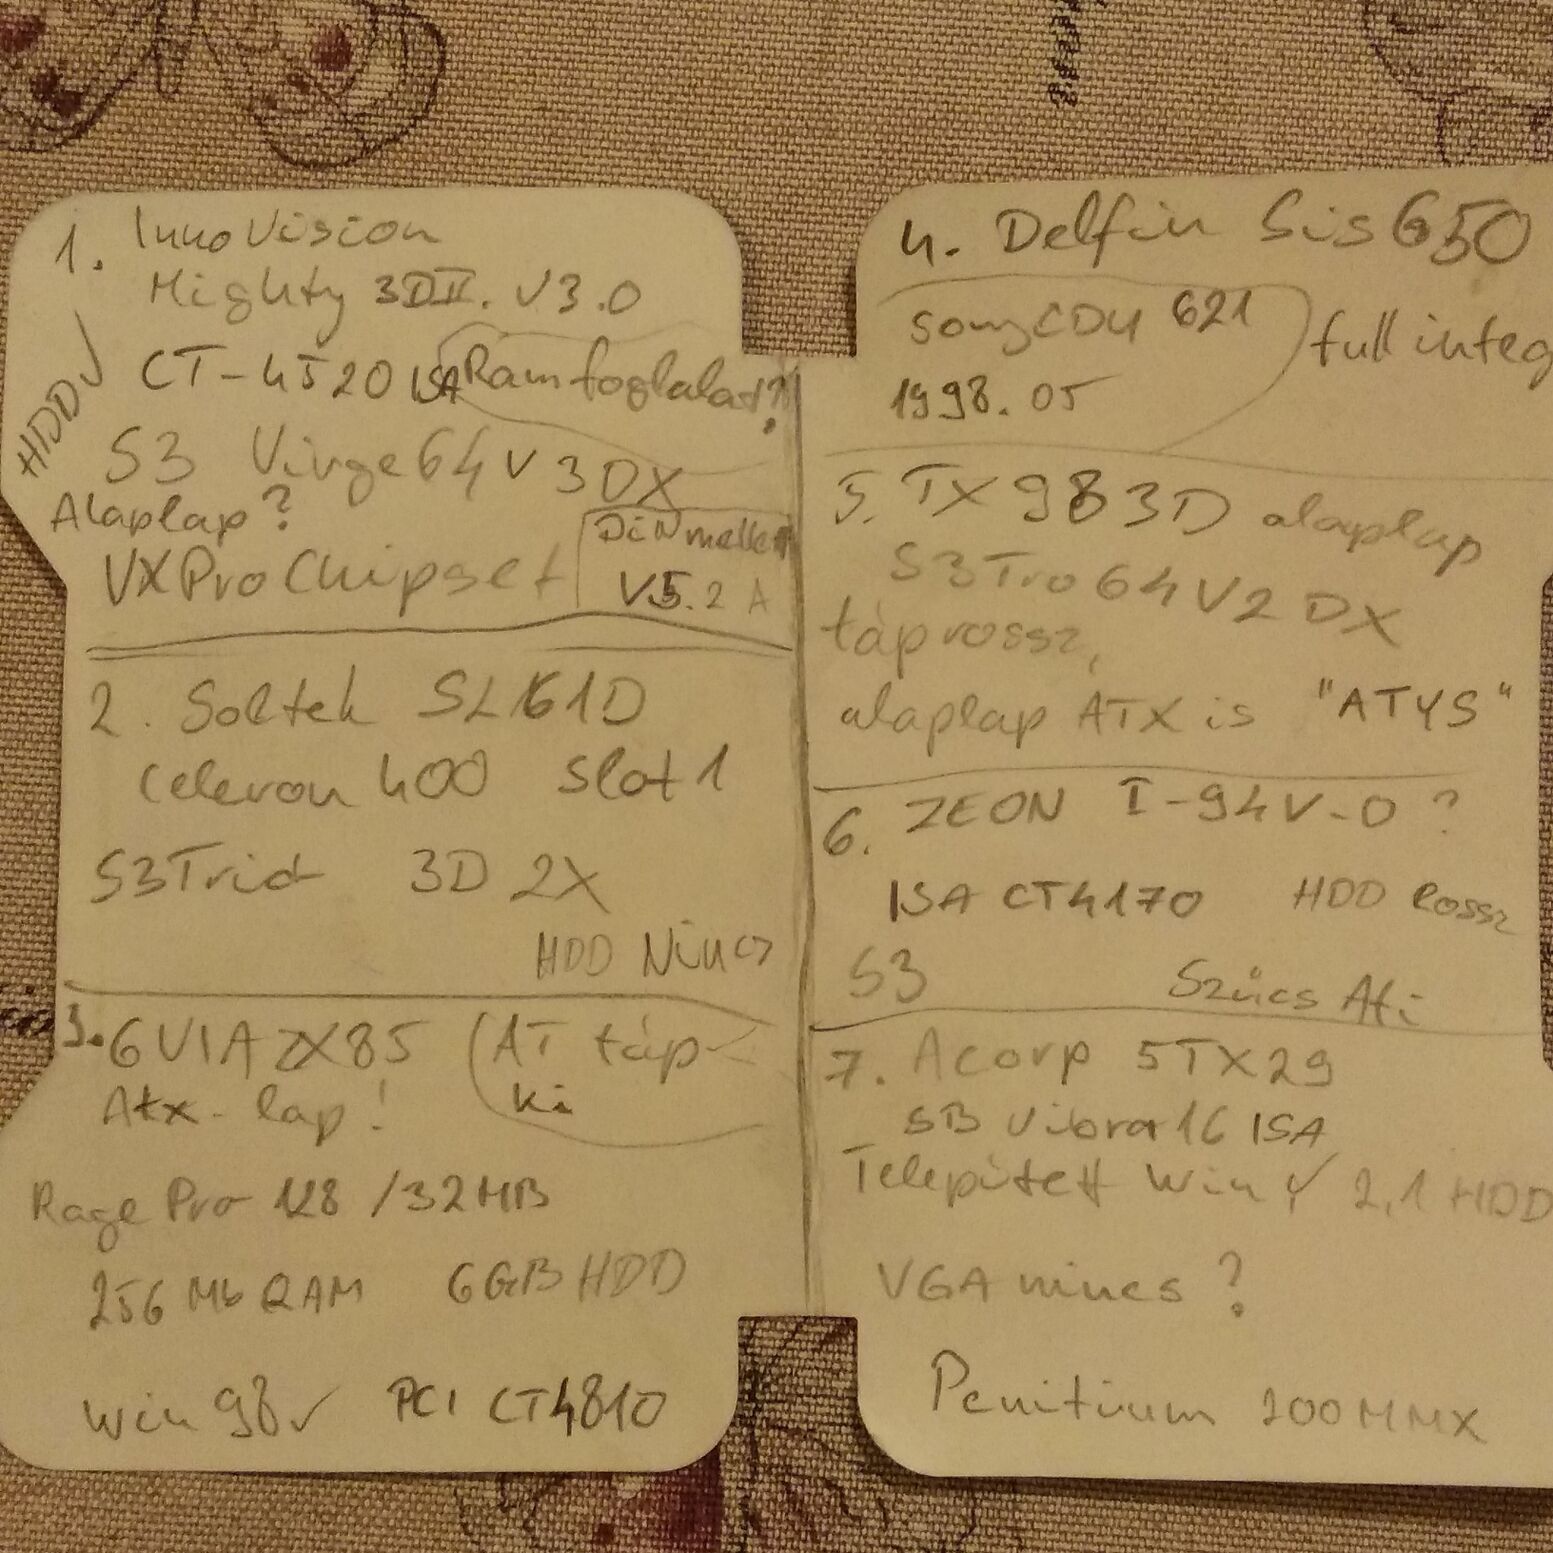 1. InnoVision
Mighty 3DII. V3.0
HDD ✓
CT-4520 ISA Ram foglalat?
S3 Virge64 V3DX
Alaplap?
VXPro Chipset
DiN mellett
V5.2 A
2. Soltek SL61D
Celeron 400 Slot 1
S3Trid 3D 2X
HDD Nincs
3. 6VIAZX85 (AT táp
Atx-lap! ki
Rage Pro 128 /32MB
256 Mb RAM 6GB HDD
Win 98 ✓ PCI CT4810
4. Delfin Sis 650
Sony CDU 621 full integ
1998.05
5. TX98 3D alaplap
S3Tro64V2DX
táp rossz,
alaplap ATX is "ATYS"
6. ZEON I-94V-0 ?
ISA CT4170 HDD Rossz
S3 Szűcs Ati
7. Acorp 5TX29
SB Vibra16 ISA
Telepített Win ✓ 2,1 HDD
VGA nincs ?
Penitium 200MMX